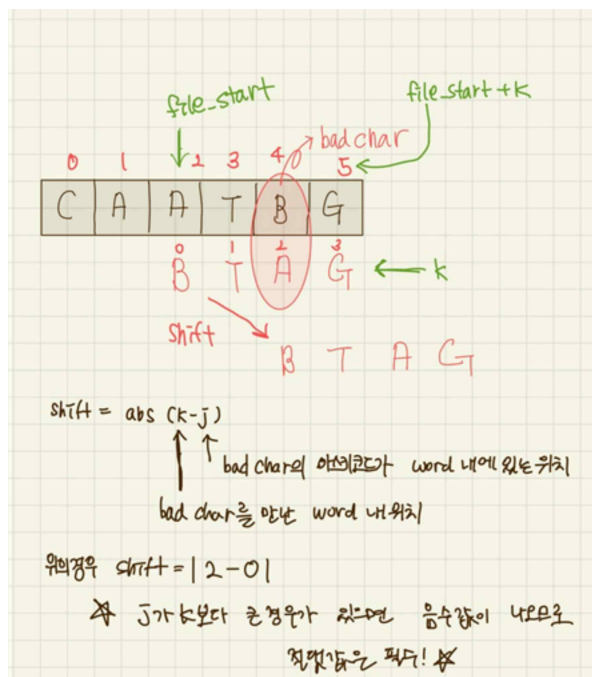 file_start
file_start+k
bad char
0 1 2 3 4 5
C A A T B G
0 1 2 3
B T A G
k
shift
B T A G
shift = abs (k-j)
bad char의 아스키코드가 word 내에 있는 위치
bad char를 만난 word 내 위치
위의경우 shift = |2-0|
☆ j가 k보다 큰 경우가 있으면 음수값이 나오므로
절댓값은 필수! ☆